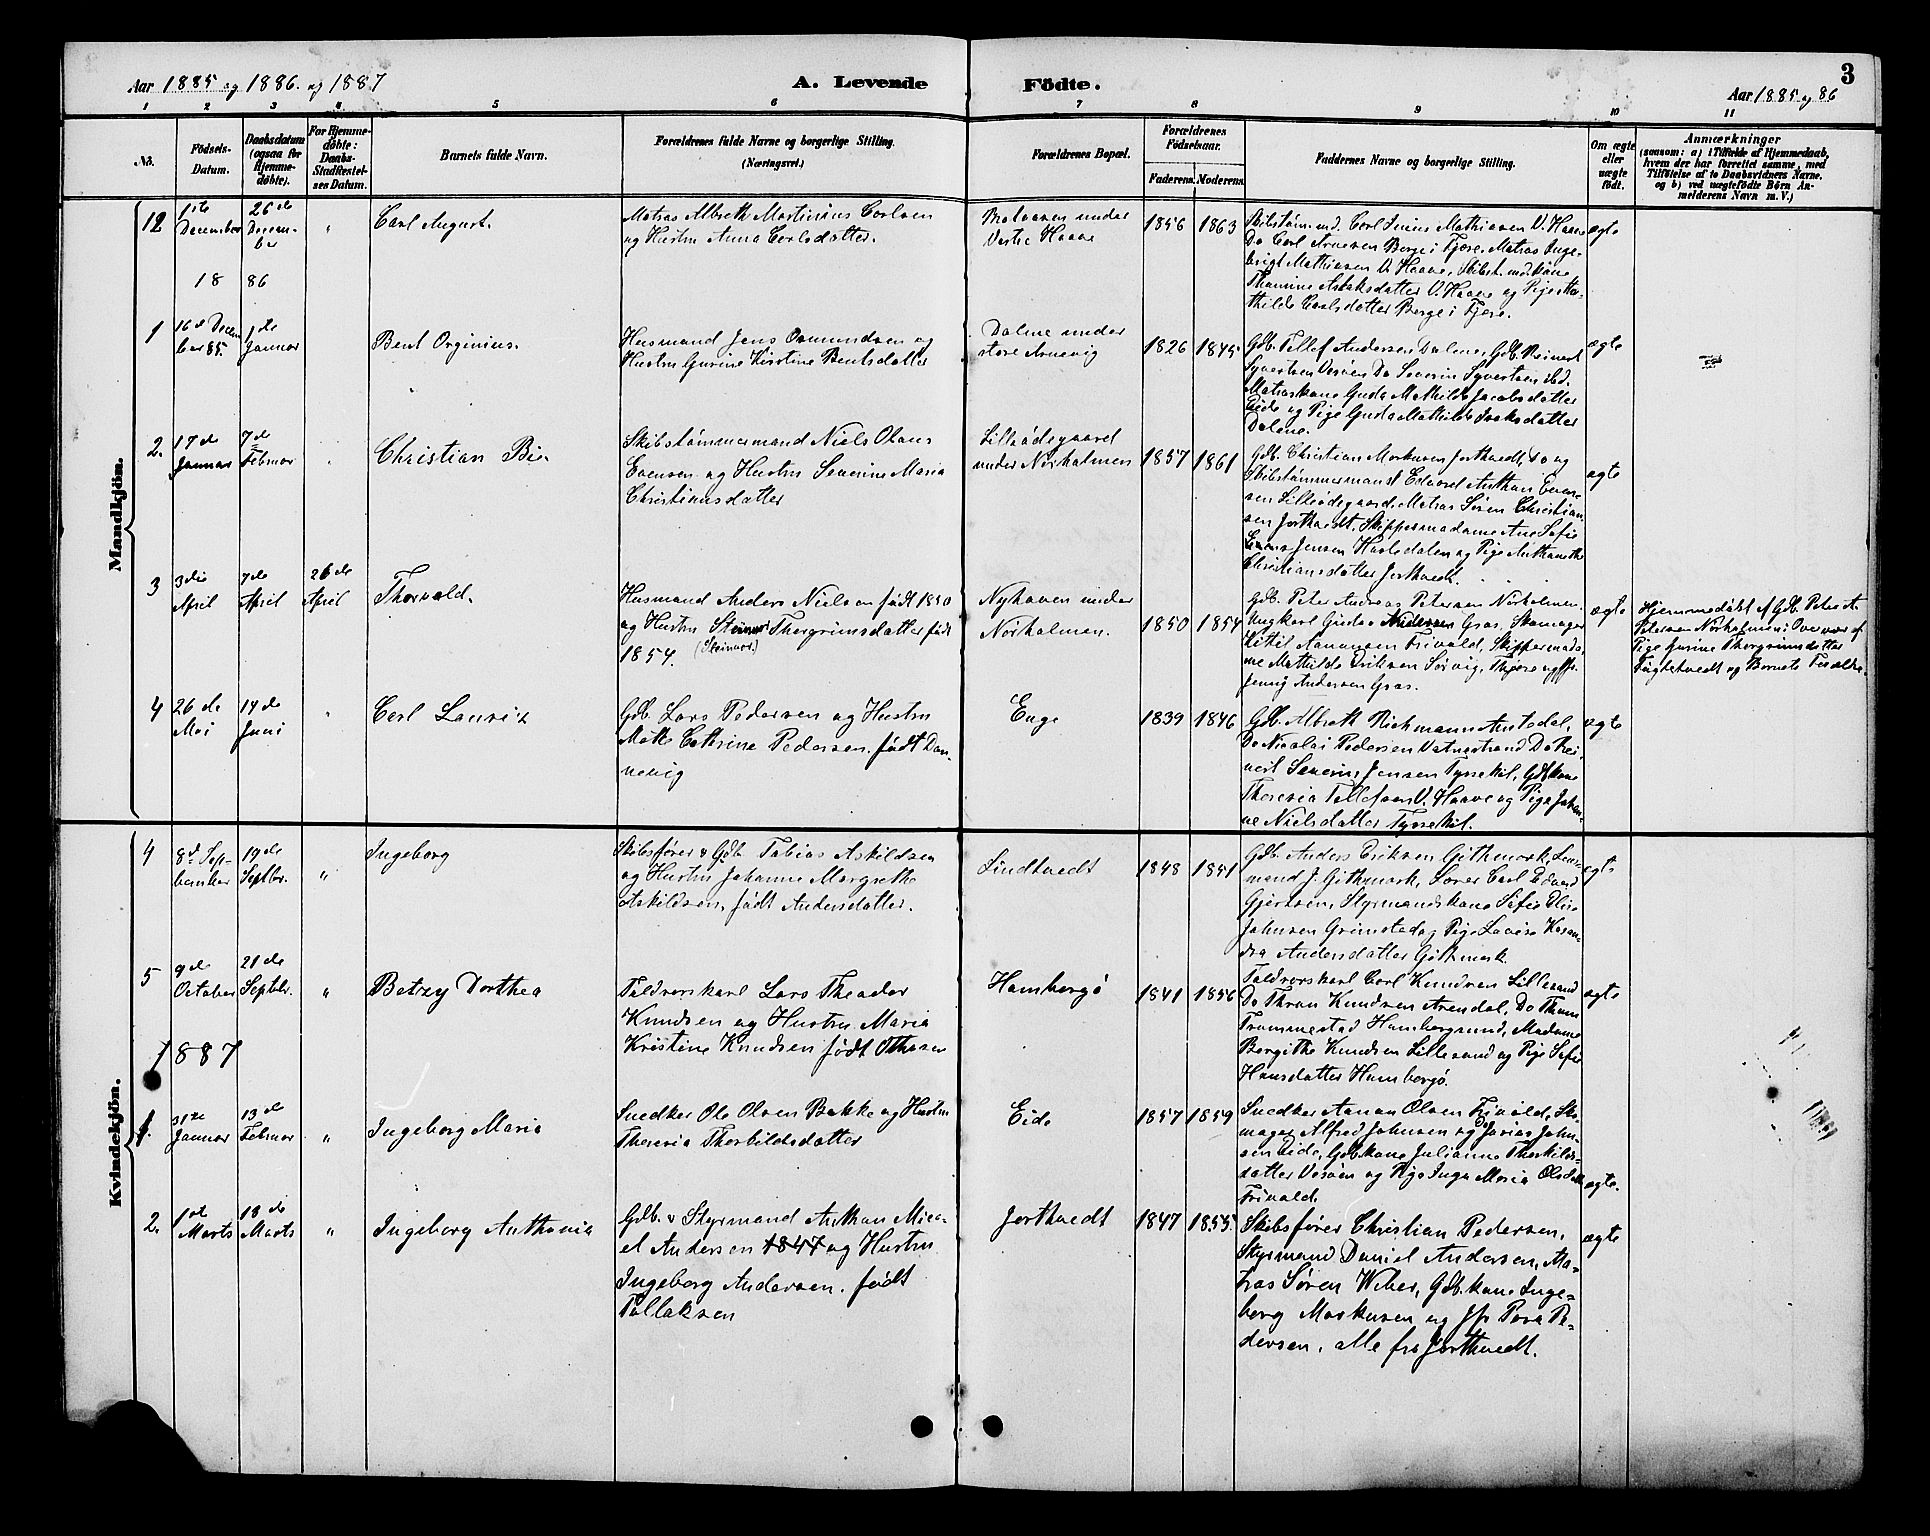 Aar 1885 og 1886. og 1887
A. Levende
Födte.
3
Aar 1885 og 86
1 2 3 4 5 6 7 8 9 10 11
No.
Födsels-
Datum.
Daabsdatum
(ogsaa for
Hjemme-
döbte).
For Hjemme-
döbte:
Daabs-
Stadfæstel-
ses Datum.
Barnets fulde Navn.
Forældrenes fulde Navne og borgerlige Stilling.
(Næringsvei.)
Forældrenes Bopæl.
Forældrenes
Födselsaar.
Faderens. Moderens.
Faddernes Navne og borgerlige Stilling.
Om ægte
eller
uægte
födt.
Anmærkninger
(saasom: a) i Tilfælde af Hjemmedaab,
hvem der har forrettet samme, med
Tilföielse af to Daabsvidners Navne.
og b) ved uægtefödte Börn An-
melderens Navn m.V.)
Mandkjön.
12
1ste
December
26de
Decem-
ber
"
Carl August.
Matros Albreth Martinius Carlsen
og Hustru Anna Carlsdatter.
under
Vestre Haave
1856 1863
Skibstøm.md. Carl Junius Mathiasen V. Haave
Do Carl Arnesen Berge i Fjære, Matros Inge-
brigt Mathiasen V. Haave, Skibst.md.kone
Thomine Aslaksdatter V. Haave og Pige Ma-
thilde Carlsdatter Berge i Fjære.
ægte
18 86
1
16de Decem
ber 85.
1de
Januar
Bent Orginius.
Husmand Jens Osmundsen og
Hustru Gurine Kirstine Bentsdatter
Dalene under
store Arnevig
1826 1845
Gdb. Tellef Andersen Dalene, Gdb. Reinert
Syvertsen Vesøen Do Severin Syvertsen ibd.
Matroskone Guda Mathilde Jacobsdatter
Eide og Pige Guda Mathilde Isaksdatter
Dalene.
ægte
2.
17de
Januar
7de
Februar
Christian Bie
Skibstømmermand Niels Olaus
Evensen og Hustru Severine Maria
Christiansdatter
Lilleødegaard
under Nørholmen
1857 1861
Gdb. Christian Markusen Jorthvedt, do og
Skibstømmermand Edvard Anthon Even-
sen Lilleødegaard, Matros Søren Christian-
sen Jorthvedt, Skippermadame Ane Sofie
Jensen Hasledalen og Pige Anthonethe
Christiansdatter Jorthvedt.
ægte
3
3die
April
7de
April
26de
April
Thorvald.
Husmand Anders Nielsen født 1850
og Hustru Steinvor Thorgrimsdatter født
1854. (Steinvor.)
Nyhaven under
Nørholmen.
1850 1854
Gdb. Peter Andreas Petersen Nørholmen,
Ungkarl Gustav Andersen Gras, Skomager
Kittil Aanonsen Trivold, Skippermada-
me Mathilde Eriksen Sørvig, Fjære og Jfr.
Jenny Andersen Gras.
ægte
Hjemmedøbt af Gdb. Peter A.
Petersen Nørholmen i Overvær af
Pige Gurine Thorgrimsdatter
Fuglehvedt og Barnets Forældre.
4
26de
Mai
14de
Juni
"
Carl Lauritz
Gdb. Lars Pedersen og Hustru
Mathe Cathrine Pedersen, født Dan-
nevig
Enge
1839 1846
Gdb. Albreth Richmann Anstedal,
Do Nicolai Pedersen Vatnestrand Do Rei-
nert Severin Jensen Tyssekil, Gdb.kone
Theresia Tellefsen V. Haave og Pige Johan-
ne Nielsdatter Tyssekil.
ægte
Kvindekjön.
4
8de Sep-
tember
19de
Septbr.
"
Ingeborg
Skibsfører & Gdb. Tobias Askildsen
og Hustru Johanne Margrethe
Askildsen, født Andersdatter.
Lindtvedt
1848 1841
Gdb. Anders Eriksen Githmark, Lens-
mand J. Githmark, Carl Edvard
Gjertsen, Styrmandskone Sofie Elise
Johnsen Grimstad og Pige Lovise Kasan-
dra Andersdatter Githmark.
ægte
5
9de
October
21de
Septbr.
"
Betzy Dorthea
Toldrorskarl Lars Theodor
Knudsen og Hustru Maria
Kristine Knudsen født Othesen
Homborgø
1841 1856
Toldrorskarl Carl Knudsen Lillesand
Do Thron Knudsen Arendal, Do Thom
Trommestad Homborgsund, Madame
Bergithe Knudsen Lillesand og Pige Sofie
Hansdatter Homborgø.
ægte
1887
1.
31te
Januar
13de
Februar
"
Ingeborg Maria
Snedker Ole Olsen Bakke og Hustru
Theresia Thorkildsdatter
Eide
1857 1859
Snedker Aanon Olsen Trivold, Sko-
mager Alfred Johnsen og Do Josias John-
sen Eide, Gdb.kone Julianne Thorkilds-
datter Vesøen og Pige Inga Maria Olsdatter
Trivold.
ægte.
2.
1de
Marts
13de
Marts
"
Ingeborg Anthonia
Gdb. & Styrmand Anthon Mica-
el Andersen 1847 og Hustru
Ingeborg Andersen, født
Tallaksen
Jorthvedt
1847 1855
Skibsfører Christian Pedersen,
Styrmand Daniel Andersen, Ma-
tros Søren Weber, Gdb.kone Inge-
borg Markusen og Jfr. Thora Pe-
dersen, alle fra Jorthvedt.
ægte